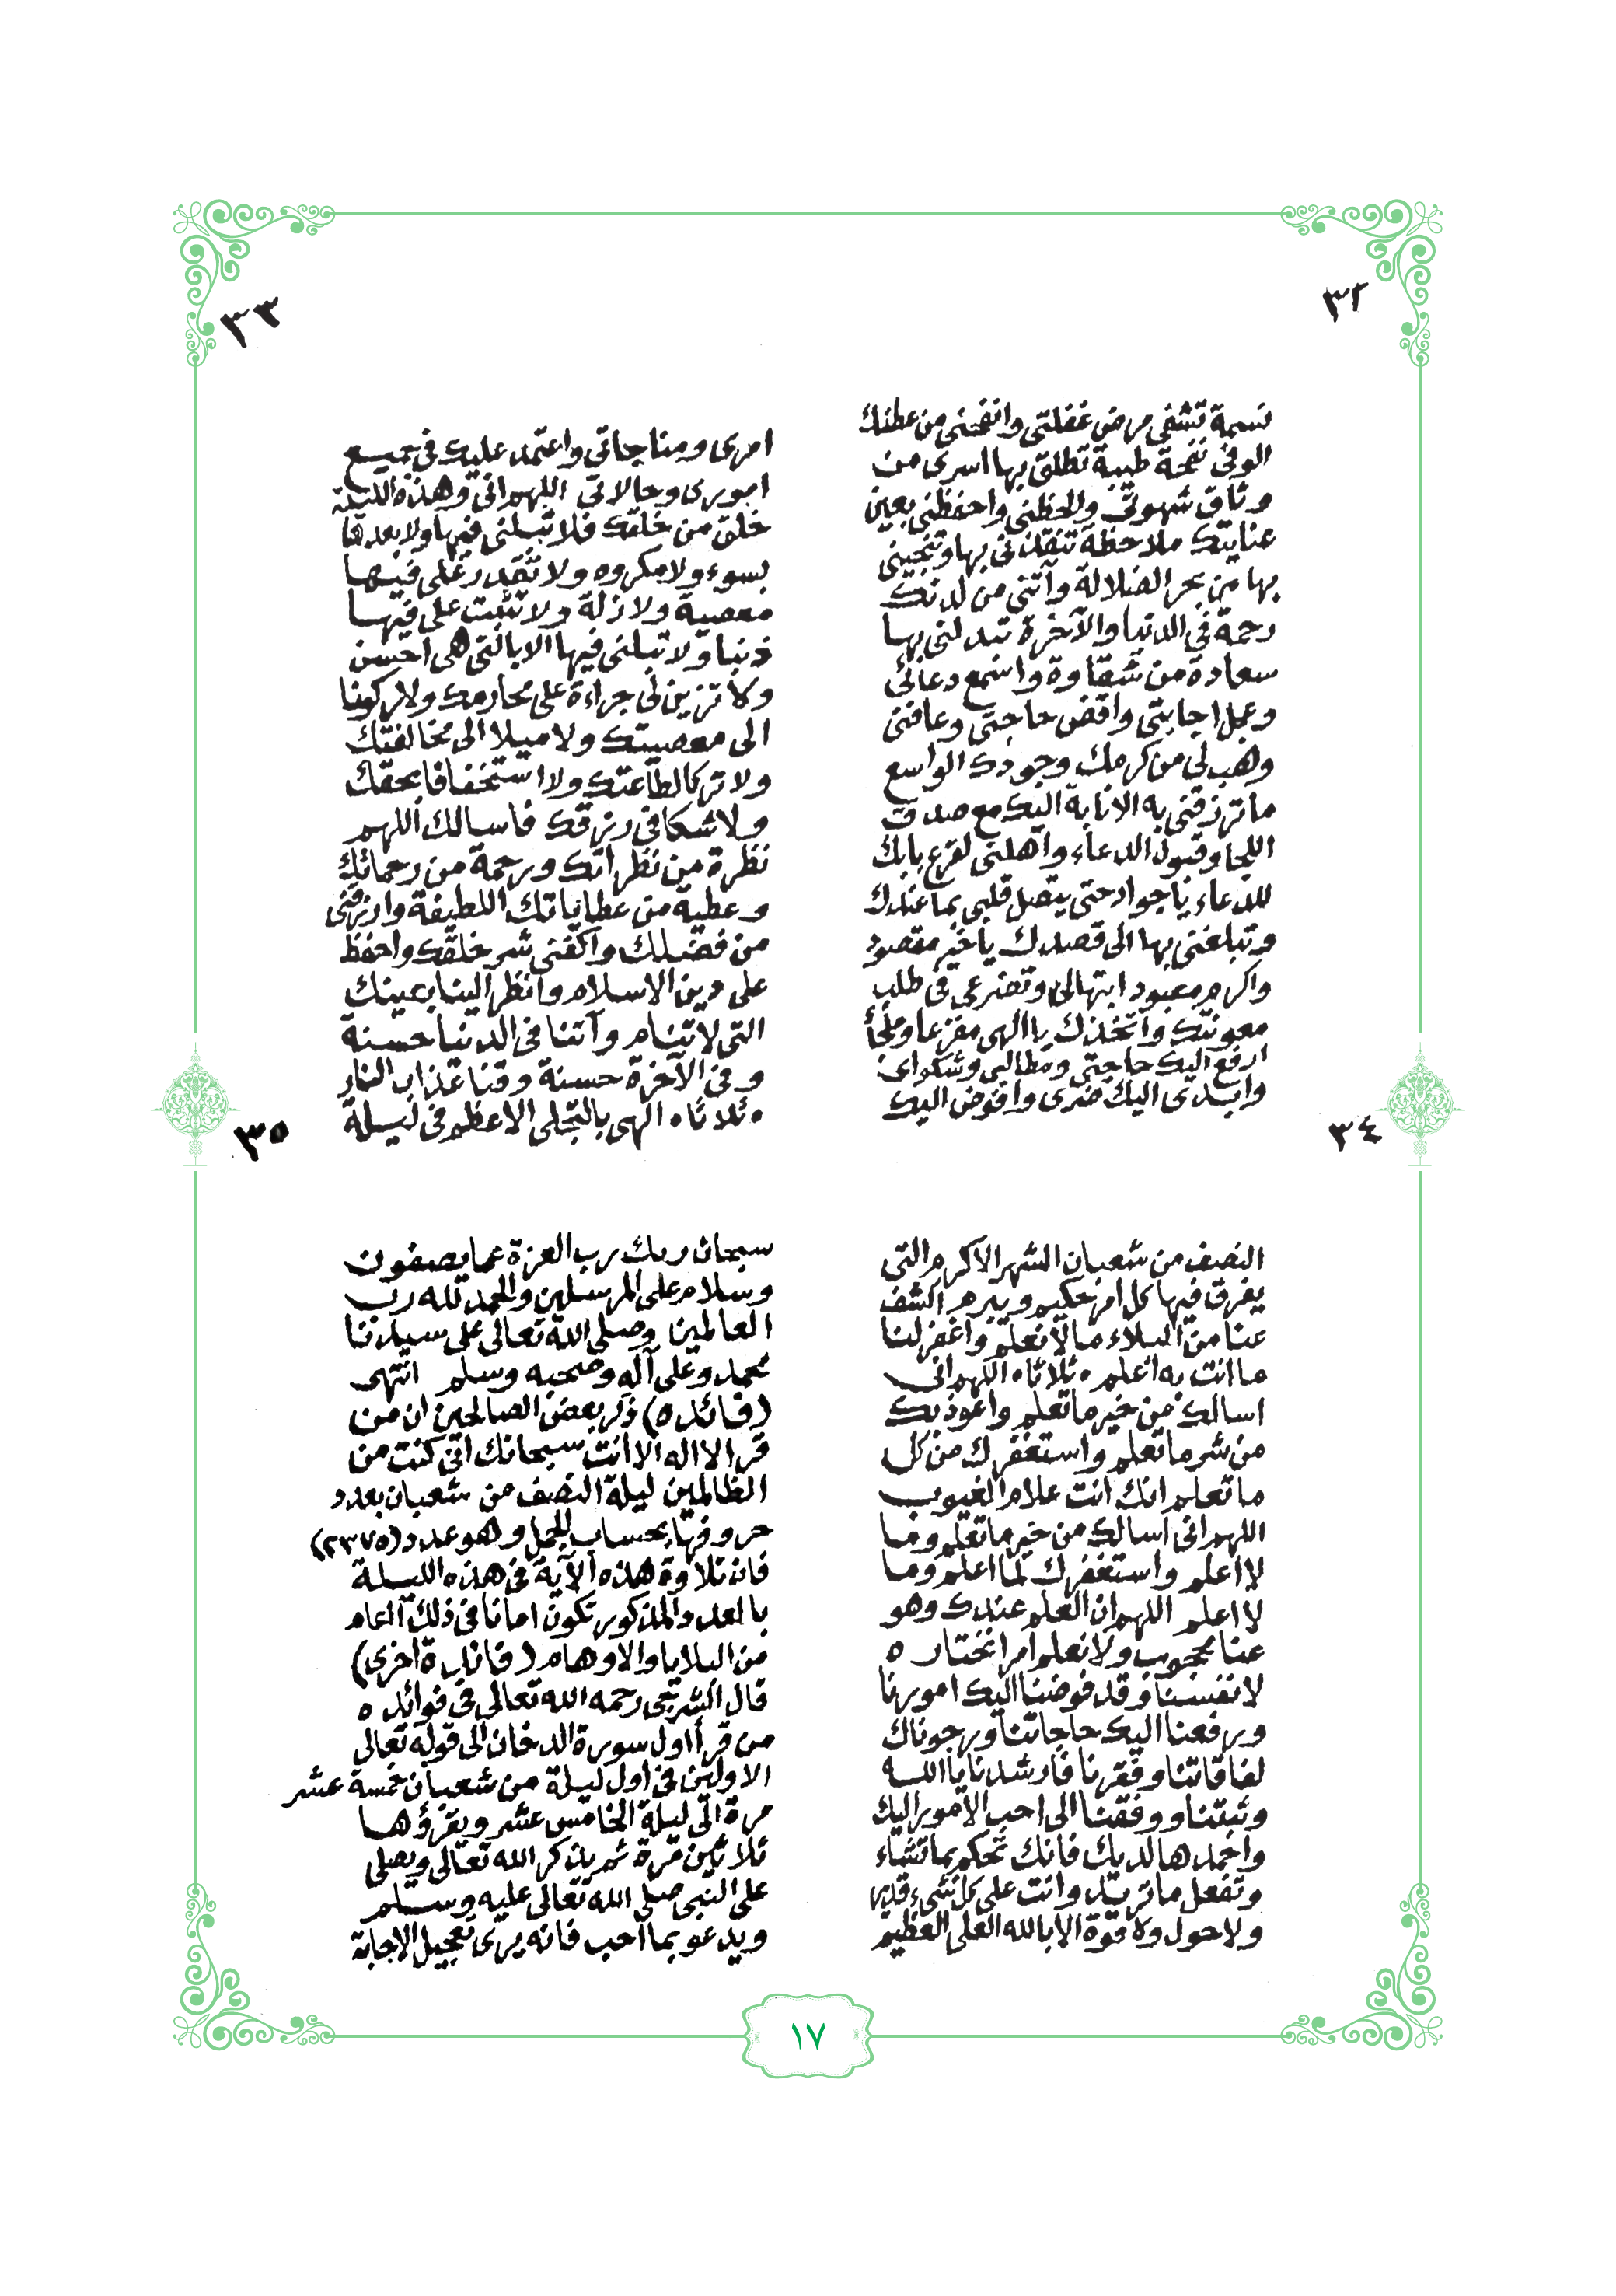 ٣٢
نسمة تشفى مرض غفلتى وانفحنى من عطفك
الوفى نفحة طيبة تطلق بها اسرى من
وثاق شهوتى والحظنى واحفظنى بعين
عنايتك ملاحظة تنقذنى بها وتنجينى
بها من بحر الضلالة وآتنى من لدنك
رحمة فى الدنيا والآخرة تبدلنى بها
سعادة من شقاوة واسمع دعائى
وعجل اجابتى واقض حاجتى وعافنى
وهب لى من كرمك وجودك الواسع
ما ترزقنى به الانابة اليك مع صدق
اللجا وقبول الدعاء وأهلنى لقرع بابك
للدعاء يا جواد حتى يتصل قلبى بما عندك
وتبلغنى بها الى قصدك يا خير مقصود
واكرم معبود ابتهالى وتضرعى فى طلب
معونتك واتخذك يا الهى مفزعا وملجأ
ارفع اليك حاجتى ومطالبى وشكواى
وابدى اليك ضرى وافوض اليك
٣٣
امرى ومناجاتى واعتمد عليك فى جميع
امورى وحالاتى اللهم انى وهذه الليلة
خلق من خلقك فلا تبلنى فيها ولا بعدها
بسوء ولا مكروه ولا تقدر على فيها
معصية ولا زلة ولا تثبت على فيها
ذنبا ولا تبلنى فيها الا بالتى هى احسن
ولا تزين لى جراءة على محارمك ولا ركونا
الى معصيتك ولا ميلا الى مخالفتك
ولا تركا لطاعتك ولا استخفافا بحقك
ولا شكا فى رزقك فاسالك اللهم
نظرة من نظراتك ورحمة من رحماتك
وعطية من عطاياتك اللطيفة وارزقنى
من فضلك واكفنى شر خلقك واحفظ
على دين الاسلام وانظر الينا بعينك
التى لا تنام وآتنا فى الدنيا حسنة
وفى الآخرة حسنة وقنا عذاب النار
٠ ثلاثا ٠ الهى بالتجلى الاعظم فى ليلة
٣٤
النصف من شعبان الشهر الاكرم التى
يفرق فيها كل امر حكيم ويبرم اكشف
عنا من البلاء ما لا نعلم واغفر لنا
ما انت به اعلم ٠ ثلاثا ٠ اللهم انى
اسالك من خير ما تعلم واعوذ بك
من شر ما تعلم واستغفرك من كل
ما تعلم انك انت علام الغيوب
اللهم انى اسالك من خير ما تعلم وما
لا اعلم واستغفرك لما اعلم وما
لا اعلم اللهم ان العلم عندك وهو
عنا محجوب ولا نعلم امرا نختاره
لانفسنا وقد فوضنا اليك امورنا
ورفعنا اليك حاجاتنا ورجوناك
لفاقاتنا وفقرنا فارشدنا يا الله
وثبتنا ووفقنا الى احب الامور اليك
واحمدها لديك فانك تحكم بما تشاء
وتفعل ما تريد وانت على كل شىء قدير
ولا حول ولا قوة الا بالله العلى العظيم
٣٥
سبحان ربك رب العزة عما يصفون
وسلام على المرسلين والحمد لله رب
العالمين وصلى الله تعالى على سيدنا
محمد وعلى آله وصحبه وسلم انتهى
(فائدة) ذكر بعض الصالحين ان من
قرا لا اله الا انت سبحانك انى كنت من
الظالمين ليلة النصف من شعبان بعدد
حروفها بحساب الجمل وهو عدد (٢٣٧٥)
فان تلاوة هذه الآية فى هذه الليلة
بالعدد المذكور تكون امانا فى ذلك العام
من البلايا والاوهام (فائدة اخرى)
قال الشرجى رحمه الله تعالى فى فوائده
من قرأ اول سورة الدخان الى قوله تعالى
الاولين فى اول ليلة من شعبان خمسة عشر
مرة الى ليلة الخامس عشر ويقرؤها
ثلاثين مرة ثم يذكر الله تعالى ويصلى
على النبى صلى الله تعالى عليه وسلم
ويدعو بما احب فانه يرى تعجيل الاجابة
١٧